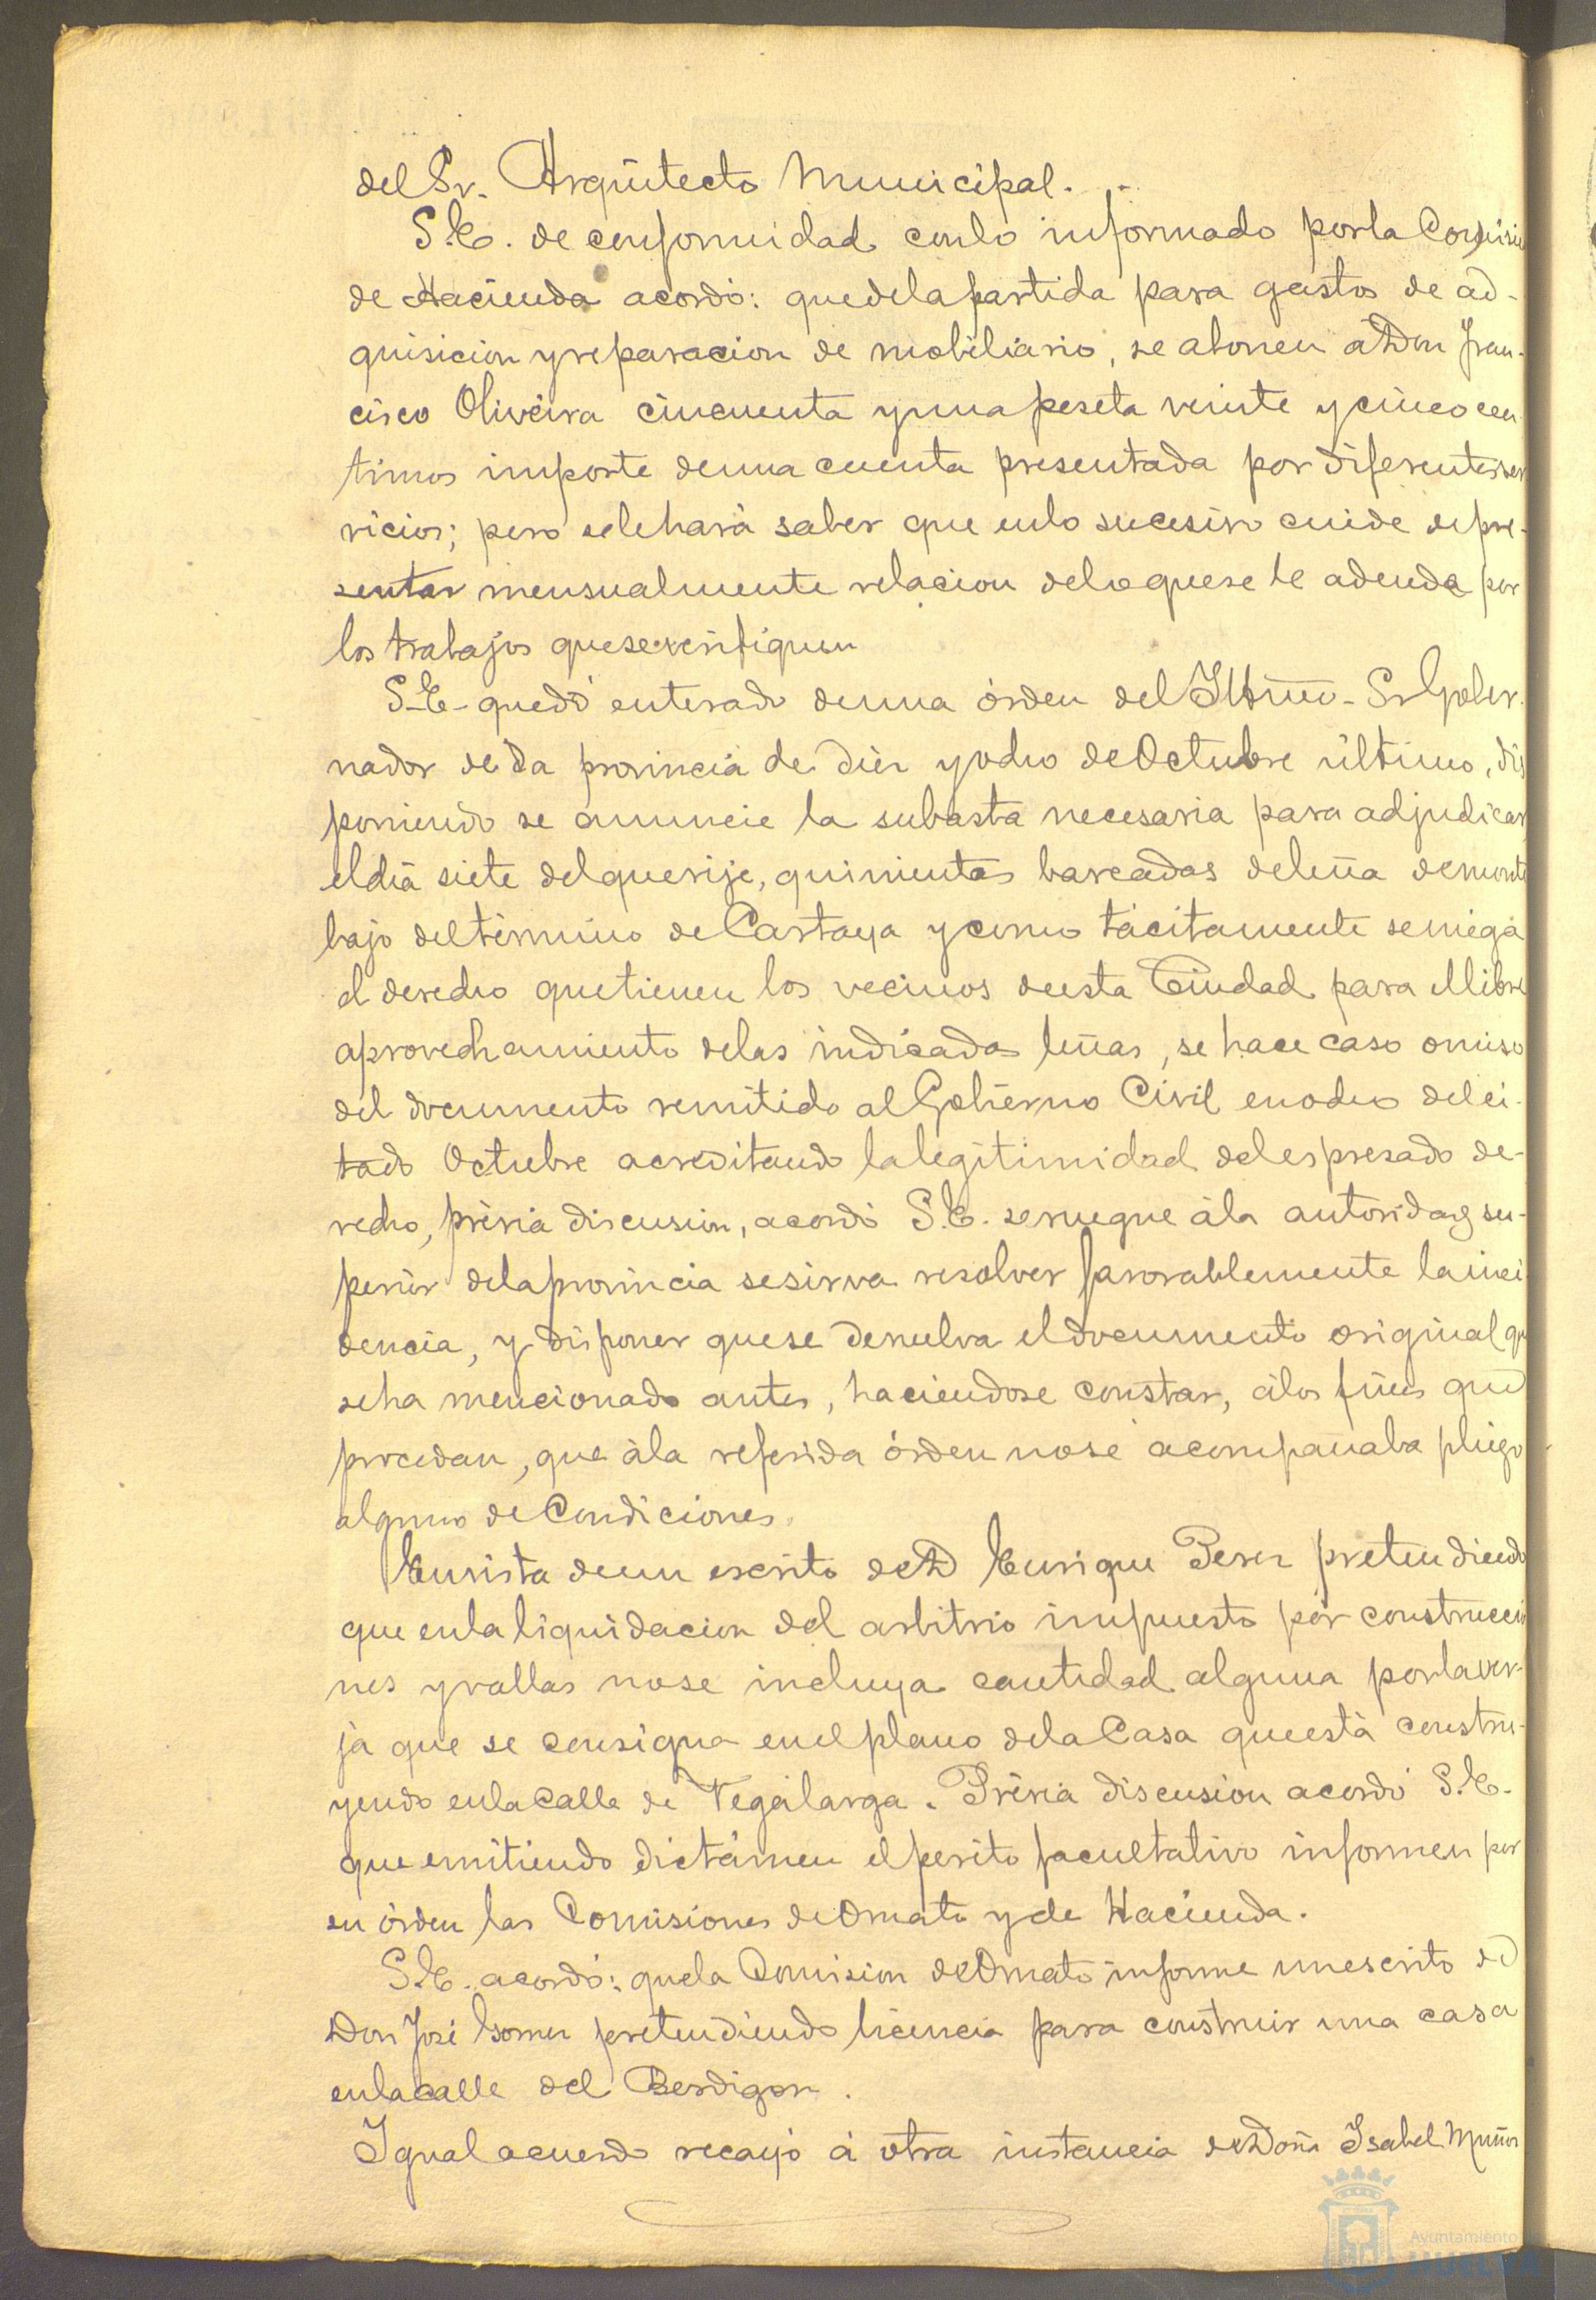 del Sr. Arquitecto Municipal.
S.E. de conformidad con lo informado por la Comisio
de Hacienda acordó: que de la partida para gastos de ad-
quisicion y reparacion de mobiliario, se abonen á Don Fran-
cisco Oliveira cincuenta y una peseta veinte y cinco cen
timos importe de una cuenta presentada por diferentes ser
vicios; pero se le hará saber que en lo sucesivo cuide de pre-
sentar mensualmente relacion de lo que se le adeuda por
los trabajos que se verifiquen
S.E. quedó enterado de una órden del Iltmo. Sr Gober-
nador de la provincia de diez y ocho de Octubre último, dis
poniendo se anuncie la subasta necesaria para adjudicar
el dia siete del que rije, quinientas barcadas de leña de monte
bajo del término de Cartaya y como tácitamente se niega
el derecho que tienen los vecinos de esta Ciudad para el libre
aprovechamiento de las indicadas leñas, se hace caso omiso
del documento remitido al Gobierno Civil en ocho del ci-
tado Octubre acreditando la legitimidad del espresado de-
recho, prévia discusion, acordó S.E. se ruegue á la autoridad su-
perior de la provincia se sirva resolver favorablemente la inci-
dencia, y disponer que se devuelva el documento original que
se ha mencionado antes, haciendose constar, á los fines que
procedan, que á la referida órden no se acompañaba pliego
alguno de Condiciones.
En vista de un escrito de D Enrique Perez pretendiendo
que en la liquidacion del arbitrio impuesto por construccio
nes y vallas no se incluya cantidad alguna por la ver-
ja que se consigna en el plano de la Casa que está constru-
yendo en la Calle de Vegalarga. Prévia discusion acordó S.E.
que emitiendo dictámen el perito facultativo informen por
su órden las Comisiones de Ornato y de Hacienda.
S.E. acordó: que la Comision de Ornato informe un escrito de
Don José Gomez pretendiendo licencia para construir una casa
en la calle del Berdigon.
Igual acuerdo recayó á otra instancia de Doña Isabel Muñoz
Ayuntamiento de
HUELVA